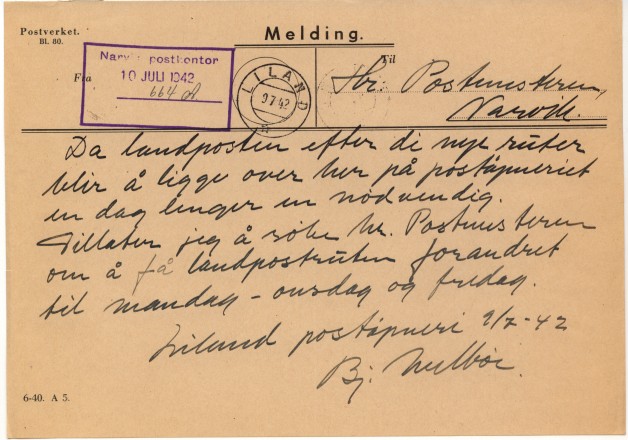 Postverket.
Bl. 80.
Melding.
Fra
Til
Narvik postkontor
10 JULI 1942
664
LILAND
9.7.42
Hr. Postmesteren,
Narvik.
Da landposten efter de nye ruter
blir å ligge over her på poståpneriet
en dag lenger en nödvendig.
Tillater jeg å söke hr. Postmesteren
om å få landpostruten forandret
til mandag - onsdag og fredag.
Liland poståpneri 9/7-42
Bj.
6-40. A 5.